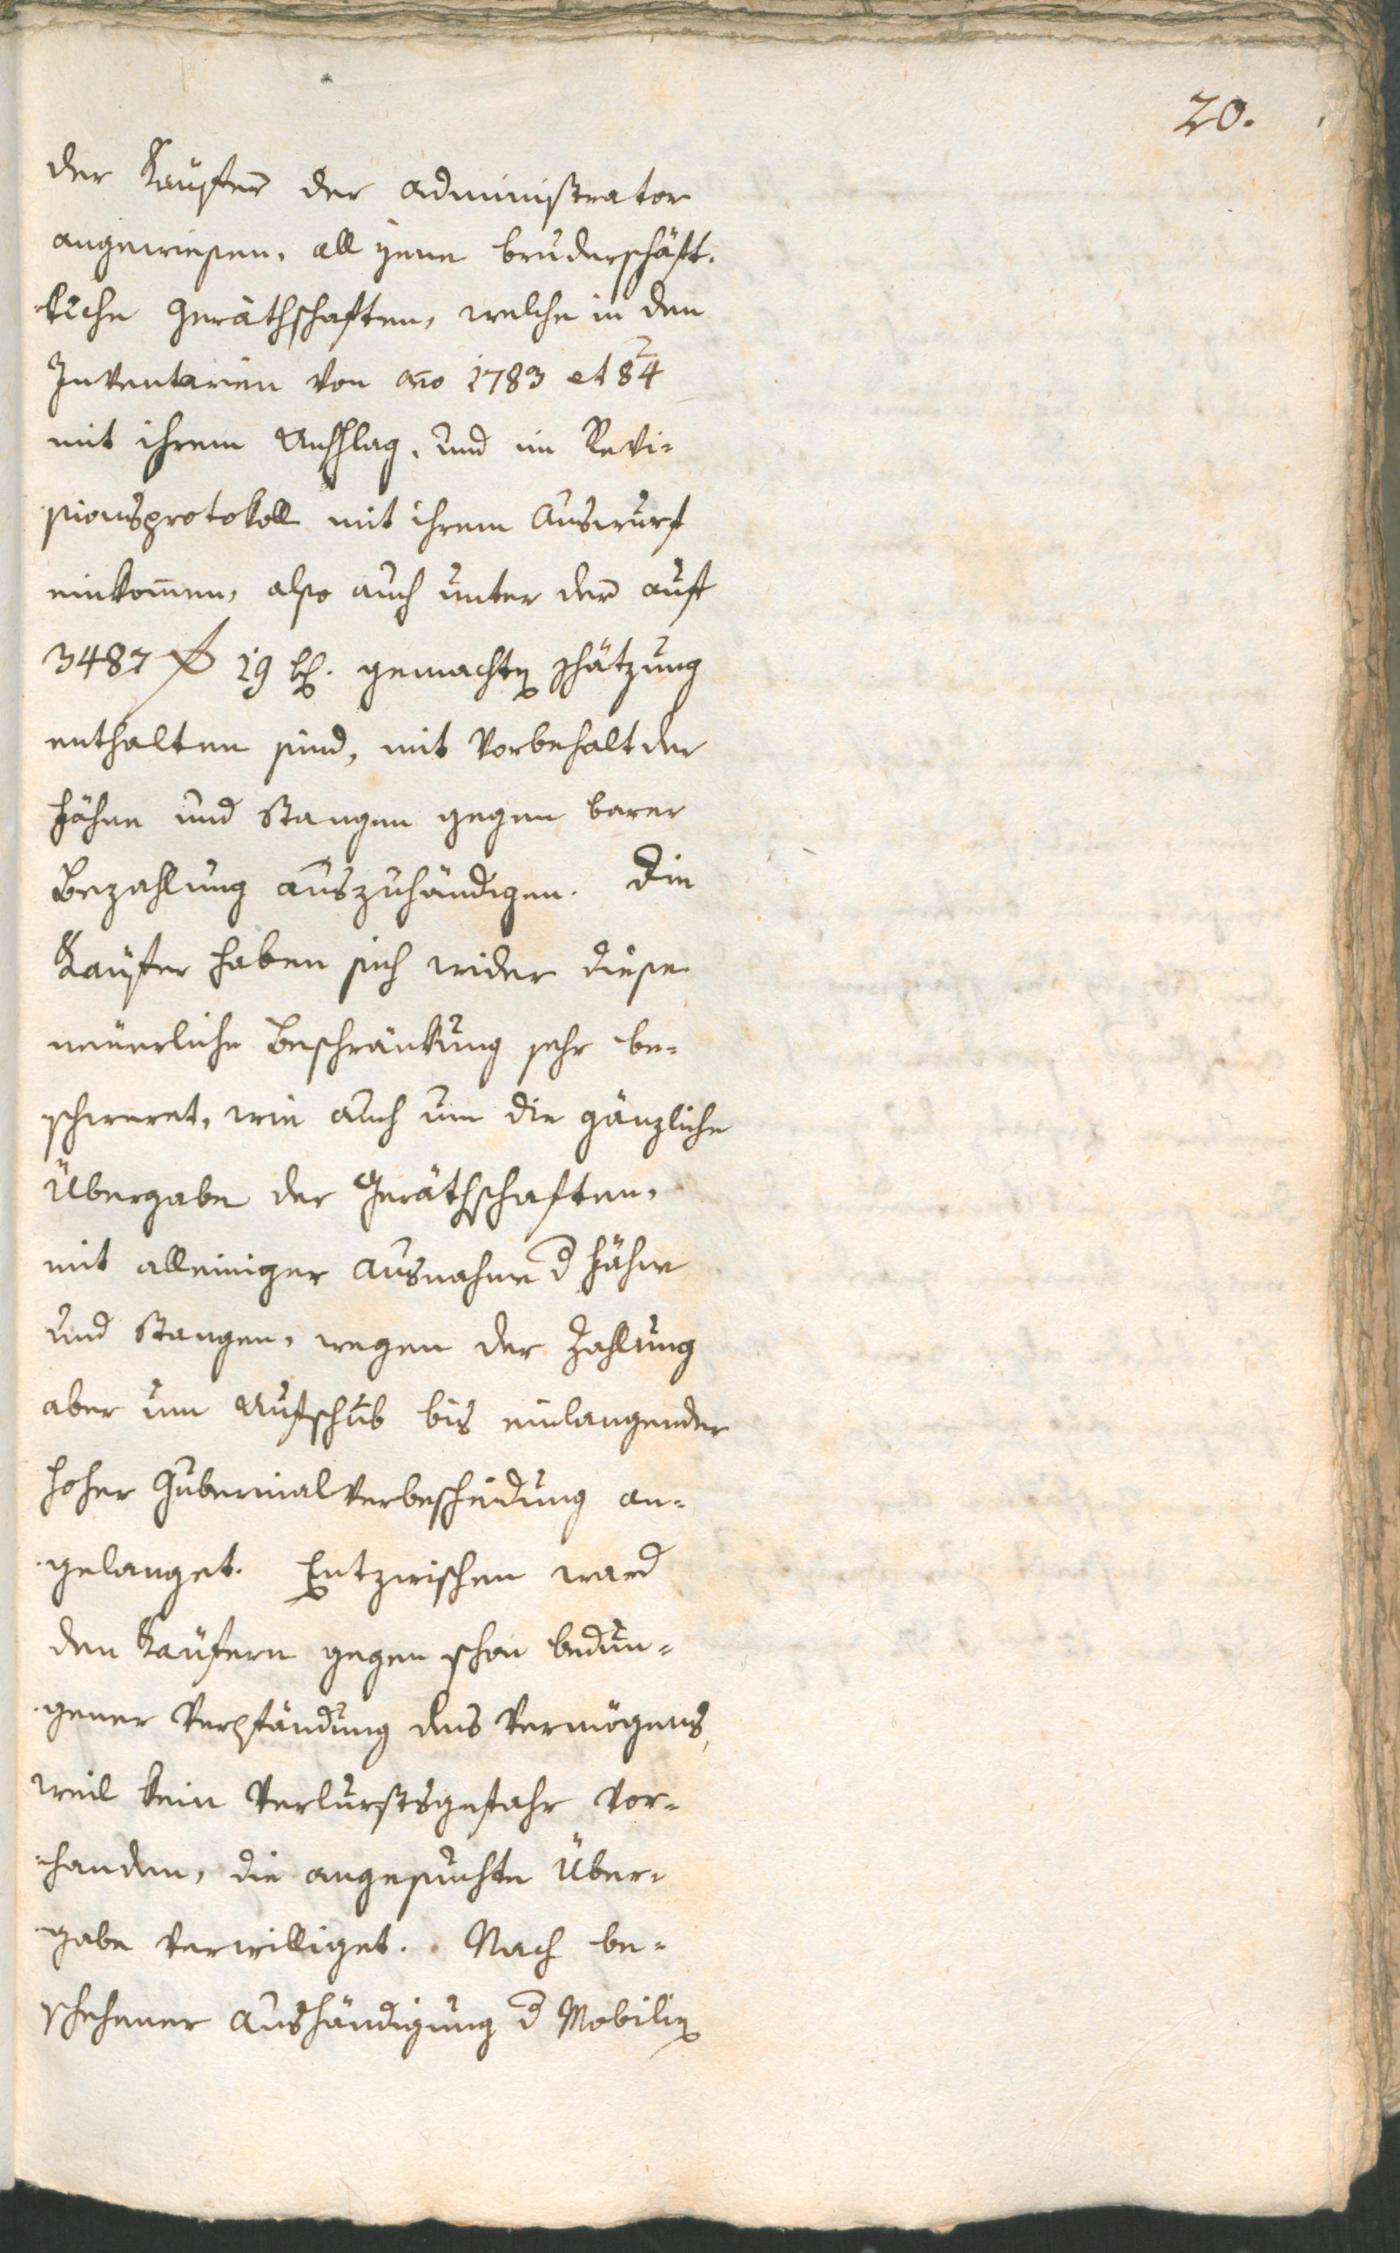 20.
der Kaüfern der administrator
angewiesen, all jene bruderschäft-
liche Geräthschaften, welche in den
Inventarien von año 1783 et 84
mit ihrem Anschlag, und im Revi-
sionsprotokoll mit ihrem Auswurf
einkom̅en, also auch unter der auf
3487 f 19 kr. gemachten schätzung
enthalten sind, mit Vorbehalt der
Fähne und Stangen gegen barer
Bezahlung auszuhändigen. Die
Kaüfer haben sich wider diese
neuerliche Beschränkung sehr be-
schweret, wie auch um die gänzliche
Übergabe der Geräthschaften,
mit alleiniger Ausnahme d Fähne
und Stangen, wegen der Zahlung
aber um Aufschub bis einlangender
hoher Gubernialverbescheidung an-
gelanget. Entzwischen ward
den Kaüfern gegen schon bedun-
gener Verpfändung des Vermögens,
weil kein Verlurstsgefahr vor-
handen, die angesuchte Über-
gabe verwilliget. Nach be-
schehener Aushändigung d Mobilien